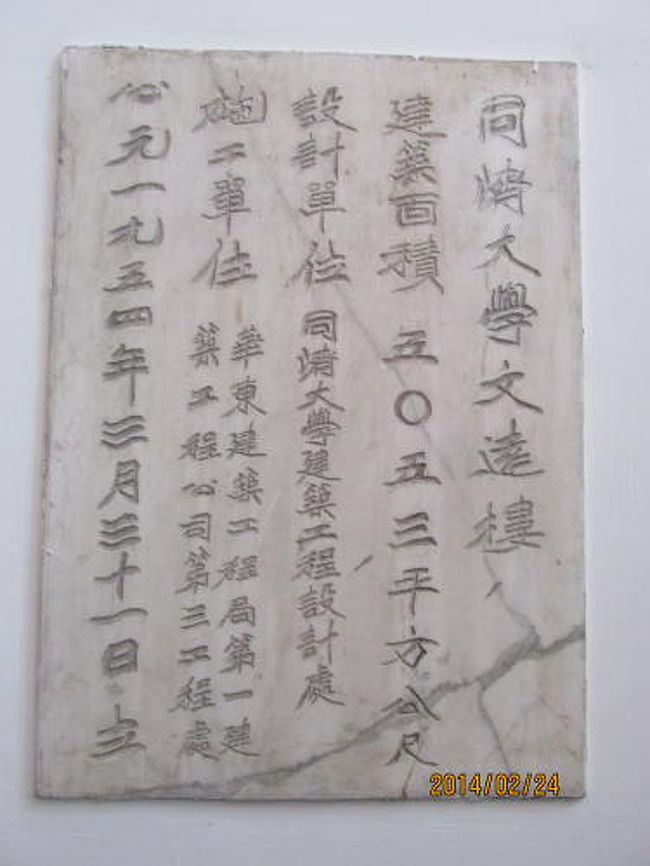 同濟大學文遠樓
建築面積 五〇五三平方公尺
設計單位 同濟大學建築工程設計處
施工單位 華東建築工程局第一建
築工程公司第三工程處
公元一九五四年三月三十一日立
2014/02/24